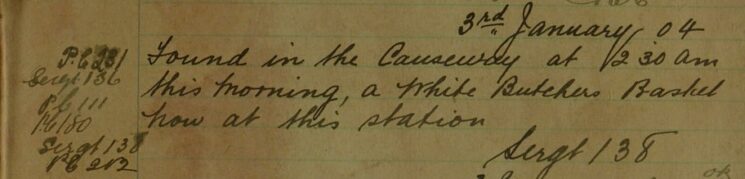 3rd January 04
P.C 231
Sergt 136
P.C 111
P.C 180
Sergt 138
P.C 212
Found in the Causeway at 12 30 am
this morning, a White Butchers Basket
now at this station
Sergt 138